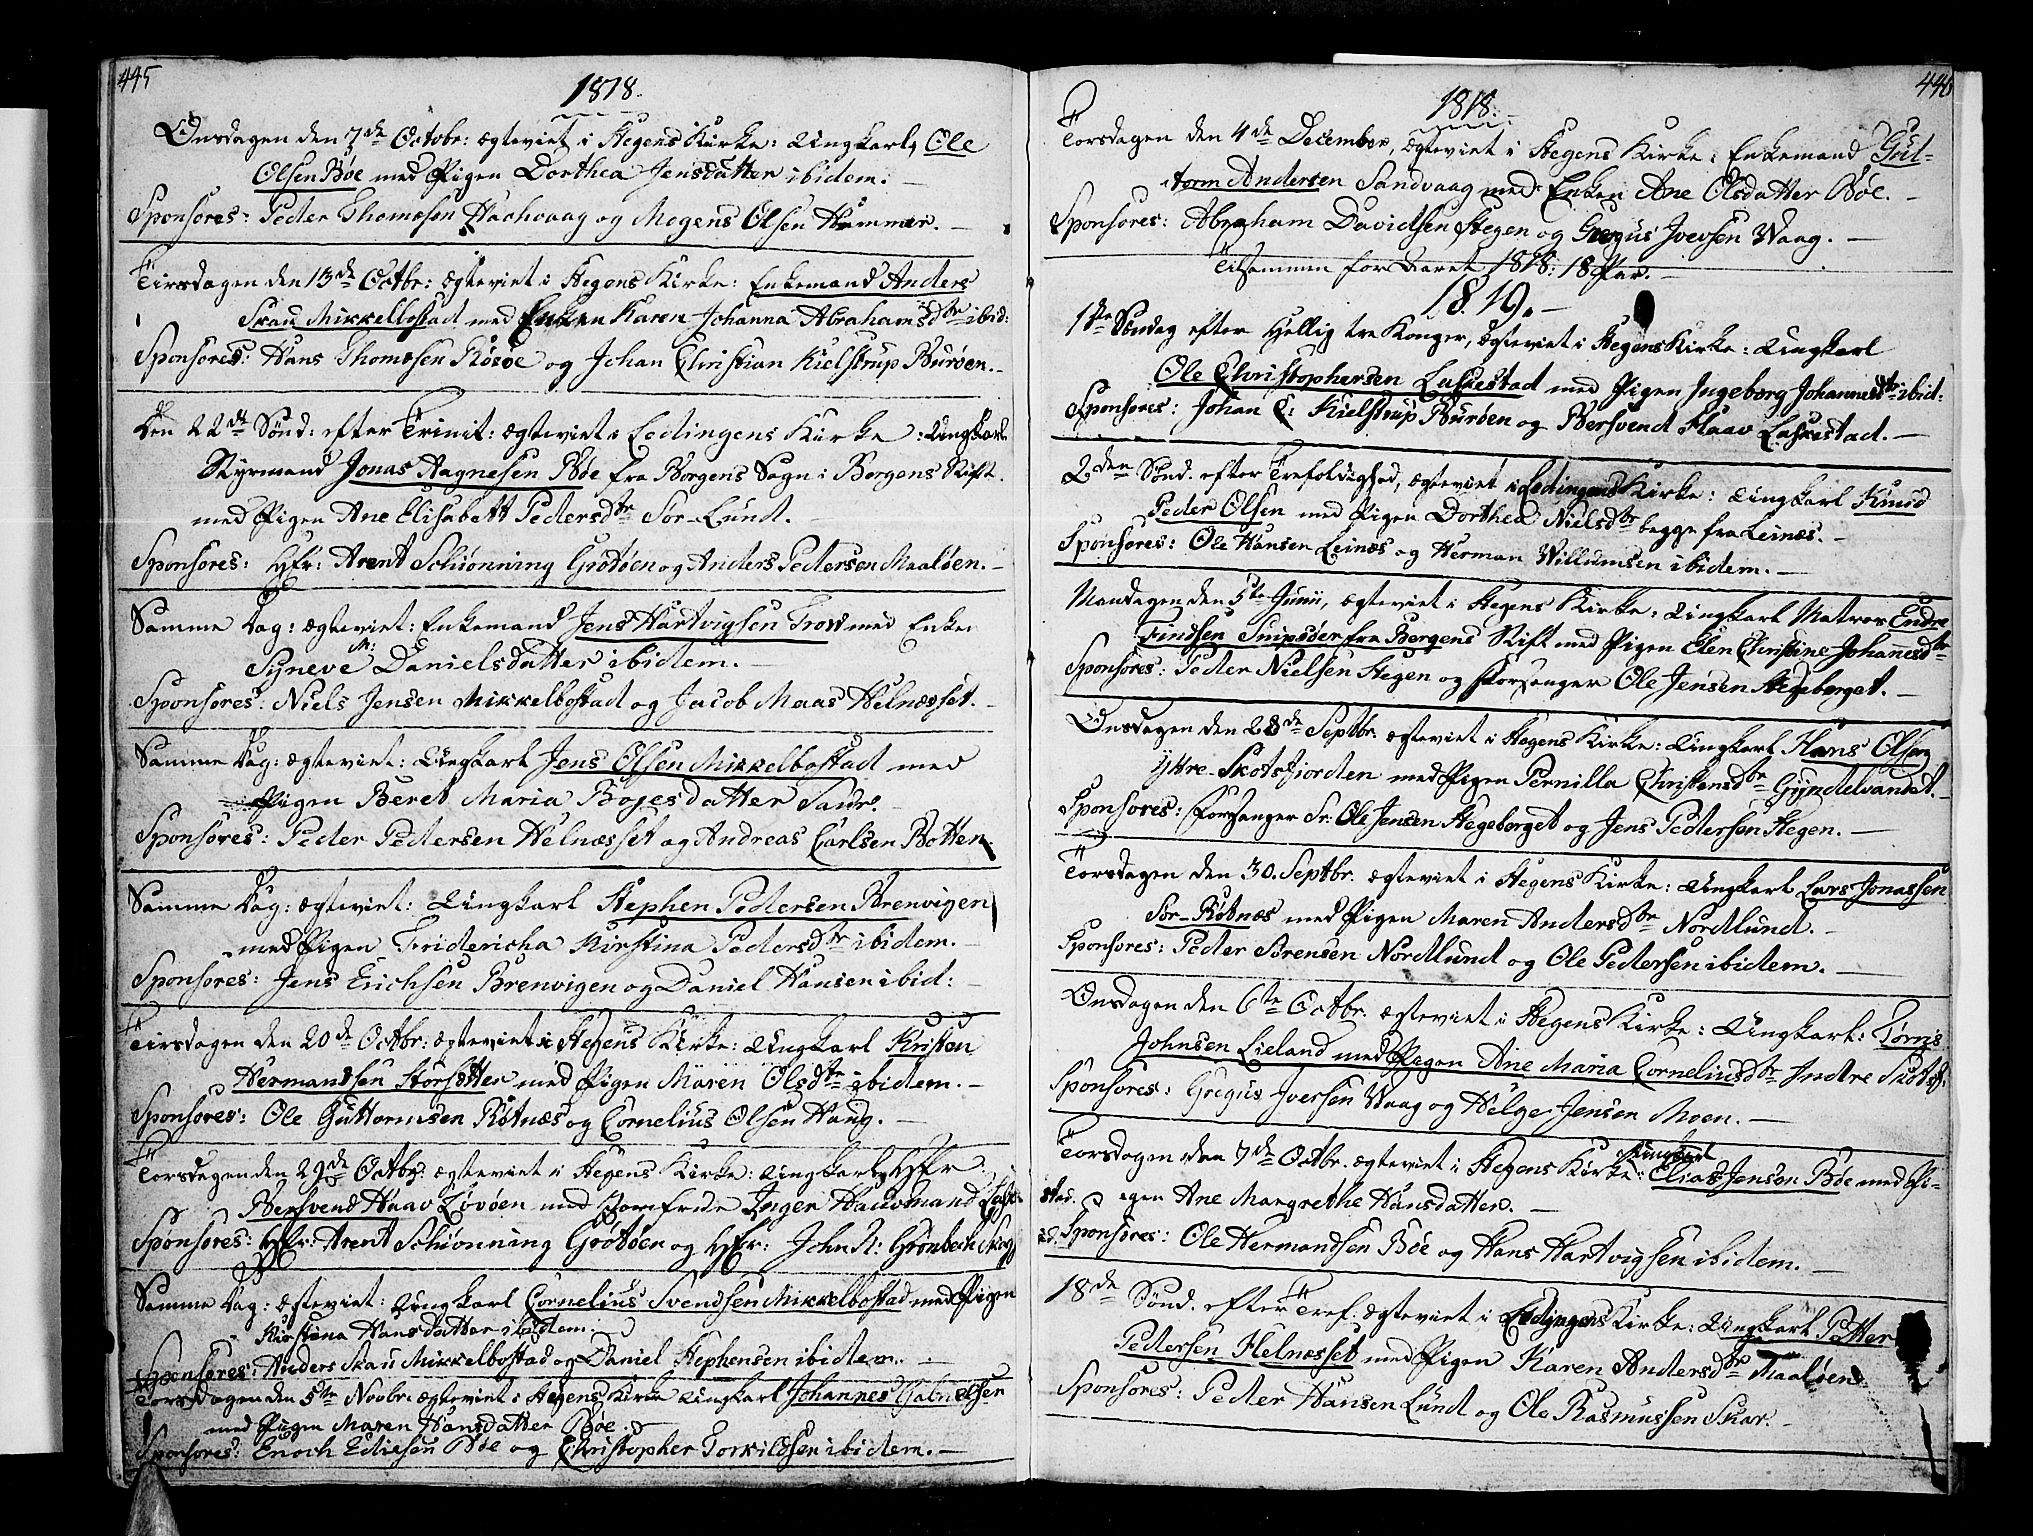 445
1818.
Onsdagen den 7de Octobr: ægteviet i Stegens Kirke: Ungkarl, Ole
Olsen Bøe med Pigen Dorthea Jensdatter ibidem.
Sponsores: Peder Thomesen Hachvaag og Mogens Olsen Hammer.
Tirsdagen den 13de Octbr: ægteviet i Stegens Kirke: Enkemand Anders
Skau Mikkelbostad med Enken Karen Johanna Abrahamsdtr ibid:
Sponsores: Hans Thomesen Røsøe og Johan Christian Kielstrup Burøen.
Den 22de Sønd: efter Trinit: ægteviet i Lødingens Kirke: Ungkarl
Styrmand Jonas Aagnesen Bøe fra Borgens Sogn i Bergens Stift.
med Pigen Ane Elisabeth Pedersdtr Sør-Lund.
Sponsores: Hfr: Arent Schiønning Grøtøen og Anders Pedersen Maaløen.
Samme Dag: ægteviet: Enkemand Jens Hartvigsen Trow med Enke
Syneve M: Danielsdatter ibidem.
Sponsores: Niels Jensen Mikkelbostad og Jacob Maas Helnæsset.
Samme Dag: ægteviet: Ungkarl Jens Olsen Mikkelbostad med
Pigen Beret Maria Bojesdatter
Sponsores: Peder Pedersen Helnæsset og Andreas Carlsen Botten.
Samme Dag: ægteviet: Ungkarl Stephen Pedersen Brenvigen
med Pigen Fridericha Kirstina Pedersdtr ibidem.
Sponsores: Jens Erichsen Brenvigen og Daniel Hansen ibid:
Tirsdagen den 20de Octbr: ægteviet i Stegens Kirke: Ungkarl Kristen
Hermandsen Storsætter med Pigen Maren Olsdtr ibidem.
Sponsores: Ole Guttormsen Røtnæs og Cornelius Olsen Haug.
Torsdagen den 29de Octbr: ægteviet i Stegens Kirke: Ungkarl Hfr
Bersvend Haav Løvøen med Jomfrue Inger Hauvmand
Sponsores: Hfr: Arent Schiønning Grøtøen og Hfr: John N: Grønbech
Samme Dag: ægteviet: Ungkarl Cornelius Svendsen Mikkelbostad med Pigen
Kirstina Hansdatter ibidem.
Sponsores: Anders Skau Mikkelbostad og Daniel Stephensen ibidem.
Torsdagen den 5te Novbr: ægteviet i Stegens Kirke Ungkarl Johannes Gabrielsen
med Pigen Maren Hansdatter Bøe.
Sponsores: Enoch Ediesen Bøe og Christopher Torkildsen ibidem.
446
1818.
Torsdagen den 4de December, ægteviet i Stegens Kirke: Enkemand Gul-
torm Andersen Sandvaag med Enken Ane Olsdatter Bøe.
Sponsores: Abraham Davidsen Stegen og Gregus Iversen Waag.
Tilsammen for Aaret 1818: 18 Par.
1819.
1ste Søndag efter Hellig tre Konger, ægteviet i Stegens Kirke: Ungkarl
Ole Christophersen Laskestad med Pigen Ingeborg Johannesdtr ibid:
Sponsores: Johan C: Kielstrup Burøen og Bersvend Haav Laskestad.
2den Sønd. efter Trefoldighed, ægteviet i Lødingens Kirke: Ungkarl Knud
Peder Olsen med Pigen Dorthea Nielsdtr begge fra Leinæs.
Sponsores: Ole Hansen Leinæs og Herman Willumsen ibidem.
Mandagen den 5te Junii, ægteviet i Stegens Kirke: Ungkarl Matros Endre
Findsen Snipsøer fra Bergens Stift med Pigen Elen Christine Johanesdtr
Sponsores: Peder Nielsen Stegen og Forsanger Ole Jensen Stegeberget.
Onsdagen den 28de Septbr. ægteviet i Stegens Kirke: Ungkarl Hans Olsen
Ytre-Skotsfjorden med Pigen Pernilla Christensdtr Gyndelvandet.
Sponsores: Forsanger Sr. Ole Jensen Stegeberget og Jens Pedersen Stegen.
Torsdagen den 30. Septbr. ægteviet i Stegens Kirke: Ungkarl Lars Jonassen
Sør-Røtnæs med Pigen Maren Andersdtr Nordlund.
Sponsores: Peder Sørensen Nordlund og Ole Pedersen ibidem.
Onsdagen den 6te Octbr. ægteviet i Stegens Kirke: Ungkarl: Tørris
Johnsen Lieland med Pigen Ane Maria Corneliusdtr Indre Skotsf:
Sponsores: Gregus Iversen Waag og Helge Jensen Moen.
Torsdagen den 7de Octbr. ægteviet i Stegens Kirke: Ungkarl Elias Jensen Bøe med Pi-
gen Ane Margrethe Hansdatter.
Sponsores: Ole Hermandsen Bøe og Hans Hartvigsen ibidem.
18de Sønd. efter Tref: ægteviet i Lødingens Kirke: Ungkarl Petter
Pedersen Helnæsset med Pigen Karen Andersdtr Maaløen
Sponsores: Peder Hansen Lund og Ole Rasmussen Skar.